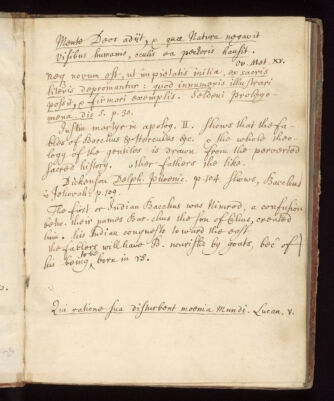 Mente Deos adijt, & quæ Natura negavit
visibus humanis, oculis ea pectoris hausit.
Ov. Met. XV.
neq novum est, ut impietatis initia, ex sacris
literis depromantur: quod innumeris illustrari
possit, & firmari exemplis. Seldeni Prolego-
mena dis S. p. 30.
Justin martyr in apolog. II. Shows that the fa-
bles of Bacchus & Hercules &c. & the whole theo-
logy of the gentiles is drawn from the perverted
sacred history. other fathers the like.
Dickenson Delph. Phoenic. p. 104. shows, Bacchus
is Jehovah: p. 109.
The first or Indian Bacchus was Nimrod, a confusion
betw. their names Bar-chus the son of Chus, created
him. his Indian conquests toward the east
the fablers will have B. nourisht by goats, bec of
his being to be born in
Qui ratione sua disturbent moenia Mundi. Lucan. V.